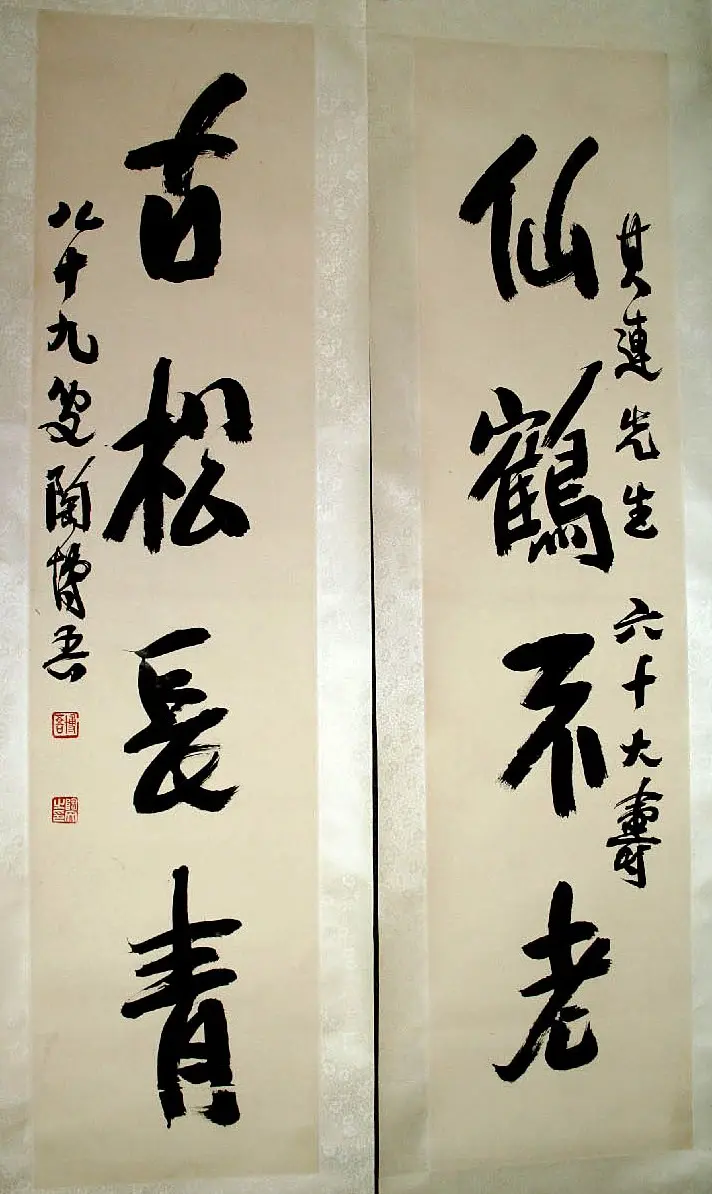 其連先生 六十大壽
仙鶴不老
古松長青
八十九叟陶博吾